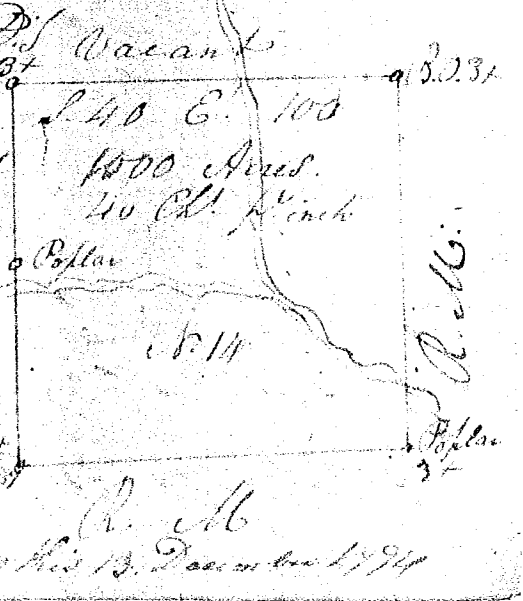 Vacant
3x
B.O. 3x
S. 40 E. 100
1000 Acres.
40 Chs. pr. inch
Poplar
N. 14
R. M.
Poplar
3x
R. M
this 13. December 1794